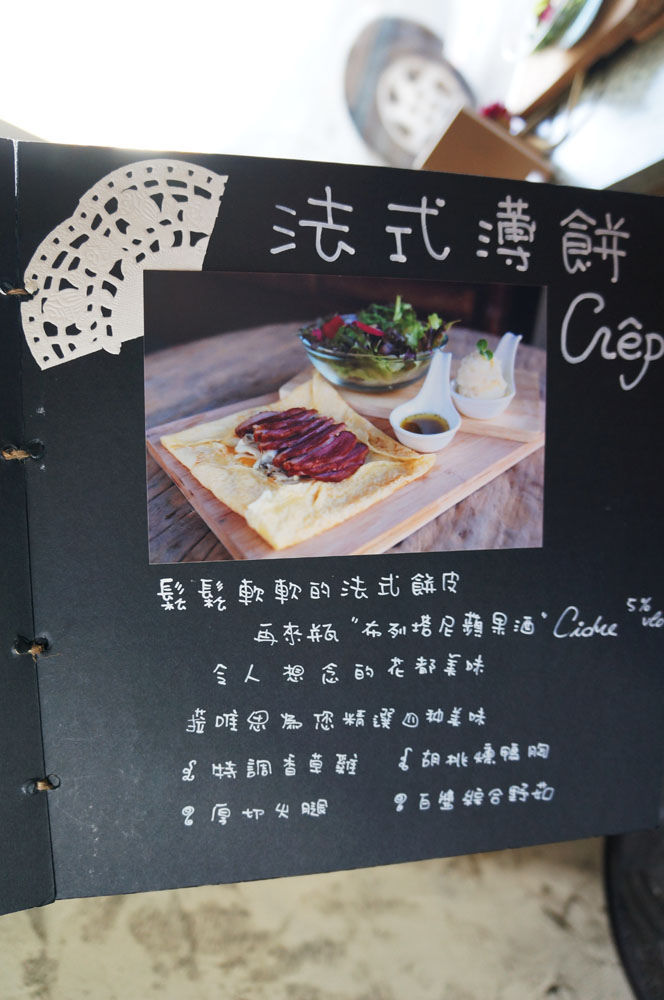 法式薄餅
Crêp
鬆鬆軟軟的法式餅皮
再來瓶"布列塔尼蘋果酒" Cidre 5% vlo
令人想念的花都美味
菈唯思為您精選四种美味
特調香草雞 胡桃燻鴨胸
厚切火腿 百醬綜合野菇